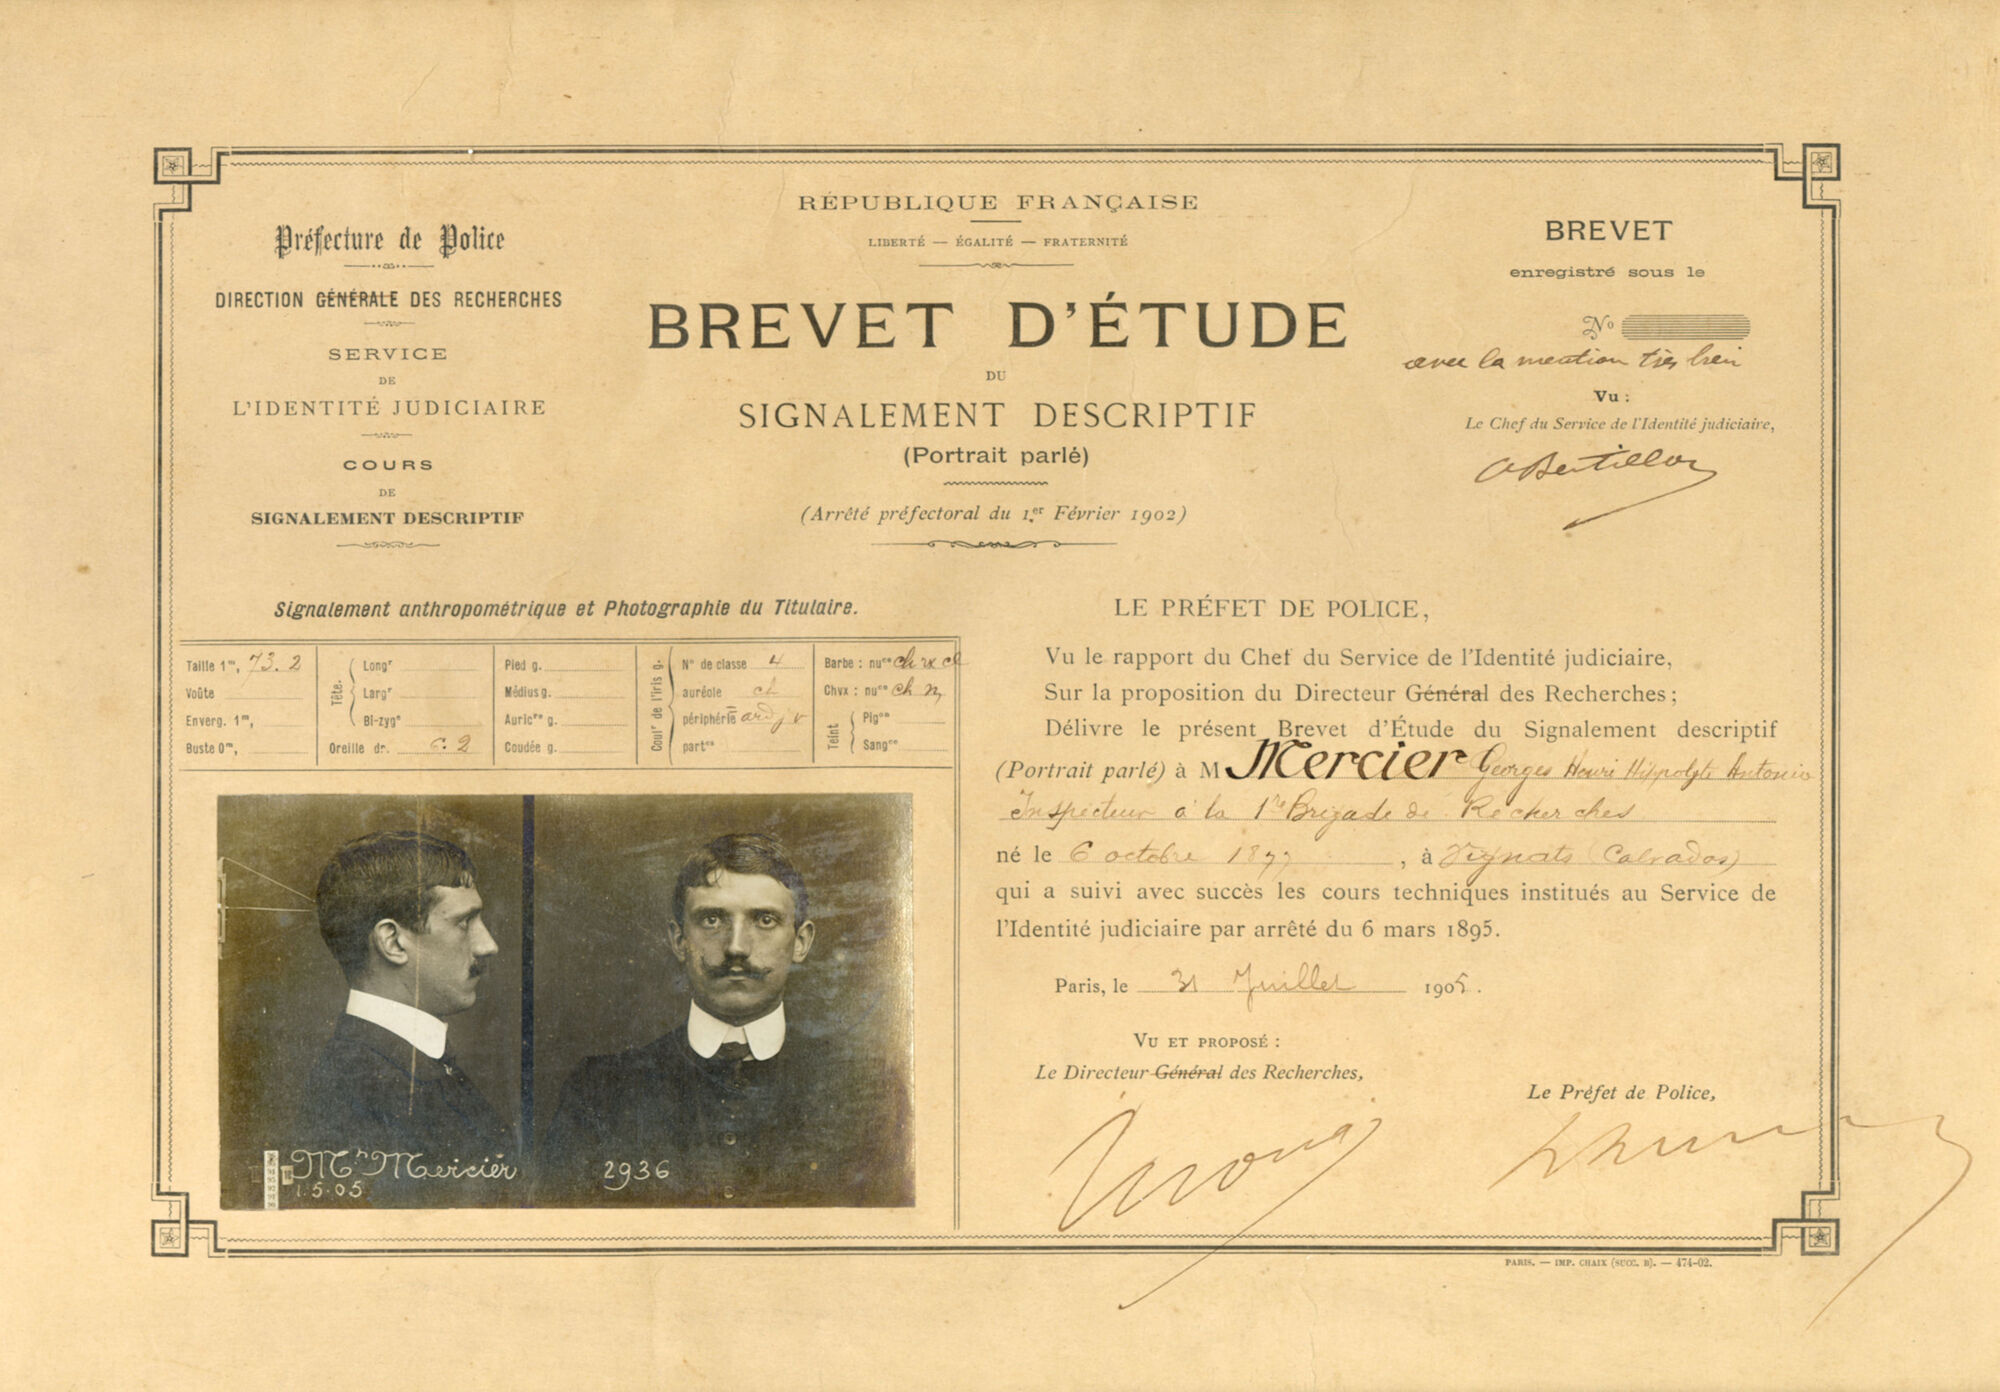 Préfecture de Police
DIRECTION GÉNÉRALE DES RECHERCHES
SERVICE
DE
L'IDENTITÉ JUDICIAIRE
COURS
DE
SIGNALEMENT DESCRIPTIF
RÉPUBLIQUE FRANÇAISE
LIBERTÉ — ÉGALITÉ — FRATERNITÉ
BREVET D'ÉTUDE
DU
SIGNALEMENT DESCRIPTIF
(Portrait parlé)
(Arrêté préfectoral du 1er Février 1902)
BREVET
enregistré sous le
No
avec la mention très bien
Vu :
Le Chef du Service de l'Identité judiciaire,
ABertillon
Signalement anthropométrique et Photographie du Titulaire.
Taille 1m, 73.2
Voûte
Enverg. 1m,
Buste 0m,
Tête.
Longr
Largr
Bi-zyge
Oreille dr. 6.2
Pied g.
Médius g.
Auricre g.
Coudée g.
Coulr de l'iris g.
No de classe 4
auréole ch
périphérie
partes
Barbe : nuce ch
Chvx : nuce ch
Teint
Pigon
Sangce
Mr Mercier 2936
1.5.05
LE PRÉFET DE POLICE,
Vu le rapport du Chef du Service de l'Identité judiciaire,
Sur la proposition du Directeur Général des Recherches ;
Délivre le présent Brevet d'Étude du Signalement descriptif
(Portrait parlé) à M Mercier Georges Henri Hippolyte Antonin
Inspecteur à la 1re Brigade de Recherches
né le 6 octobre 1877, à Vignats (Calvados)
qui a suivi avec succès les cours techniques institués au Service de
l'Identité judiciaire par arrêté du 6 mars 1895.
Paris, le 31 Juillet 1905.
VU ET PROPOSÉ :
Le Directeur Général des Recherches,
Le Préfet de Police,
PARIS. — IMP. CHAIX (SUCC. B). — 474-02.